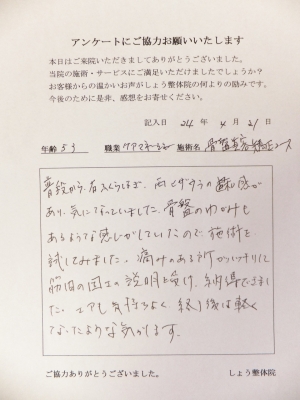 アンケートにご協力お願いいたします
本日はご来院いただきましてありがとうございました。
当院の施術・サービスにご満足いただけましたでしょうか?
お客様からの温かいお声がしょう整体院の何よりの励みです。
今後のために是非、感想をお寄せください。
記入日 24年 4月 21日
年齢 53 職業 ケアマネージャー 施術名 骨盤 矯正コース
普段から、右
あり、気になっていました。骨盤のゆがみも
あるような感じがしていたので、施術を
試してみました。痛みのある所がハッキリして
筋肉の の説明も受け、納得できまし
た。 とても気持ちよく、終り後は軽く
なったような気がします。
ご協力ありがとうございました。 しょう整体院